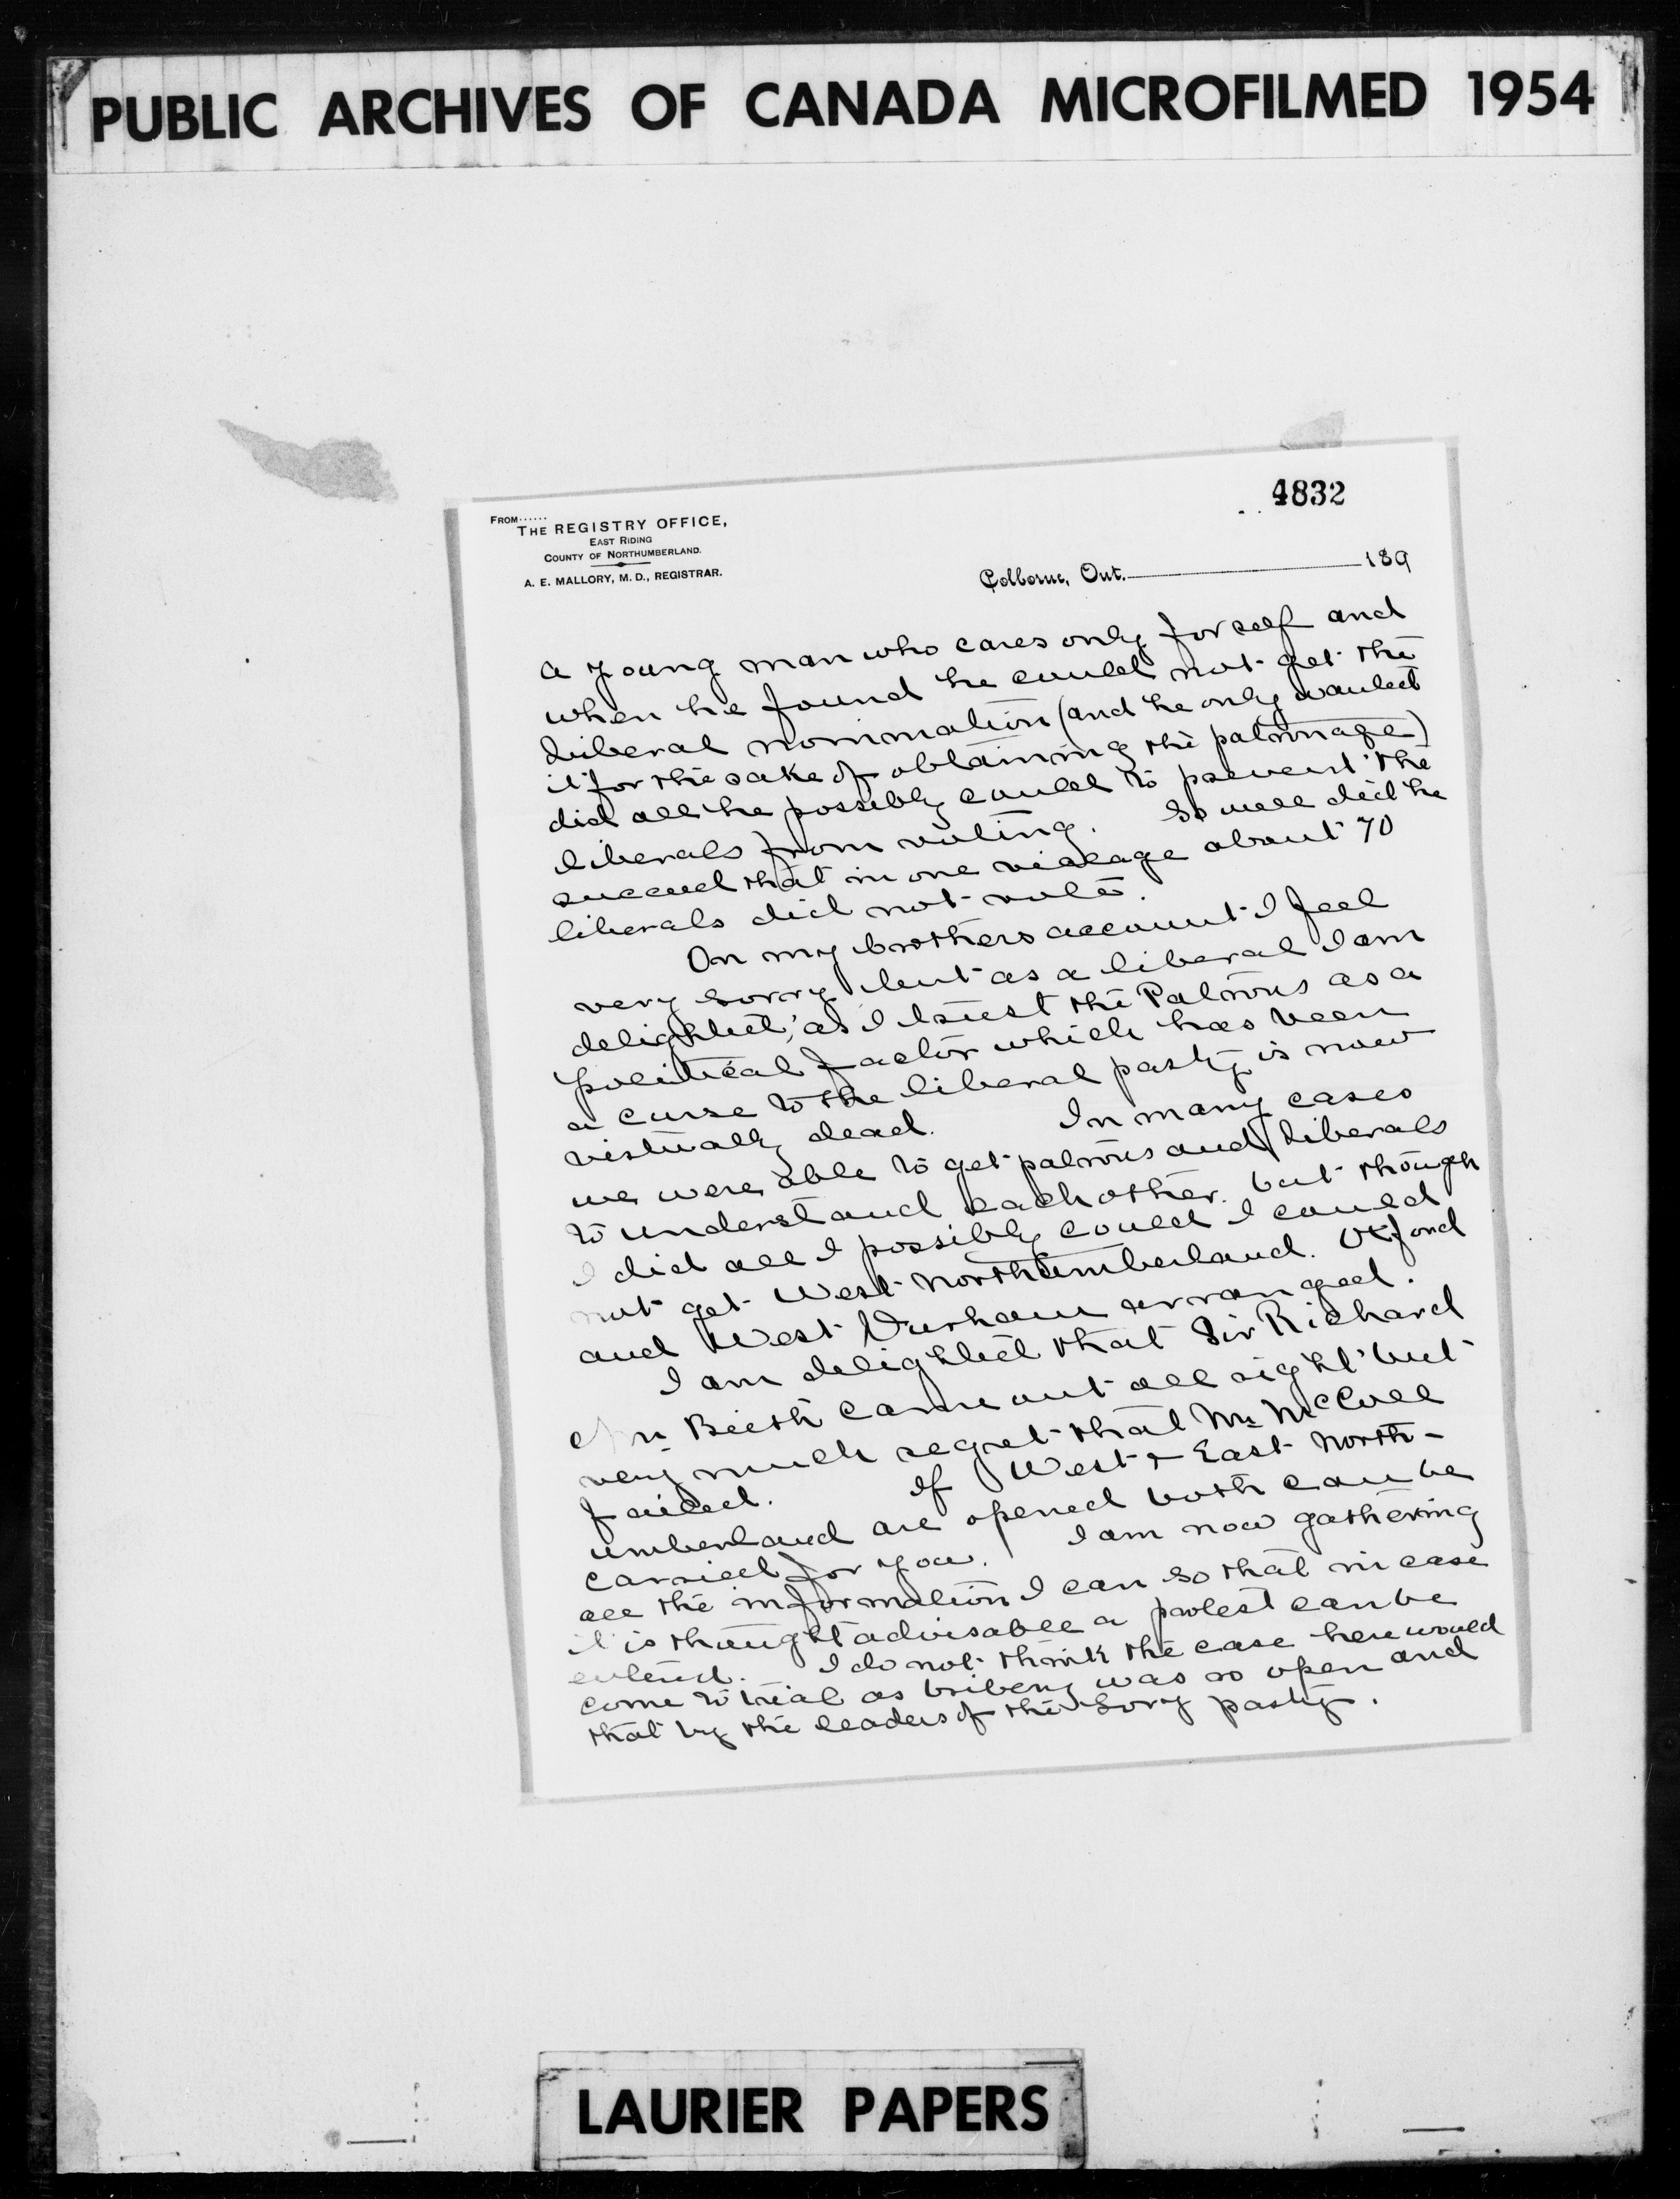 PUBLIC ARCHIVES OF CANADA MICROFILMED 1954
4832
FROM......
THE REGISTRY OFFICE,
EAST RIDING
COUNTY OF NORTHUMBERLAND.
A. E. MALLORY, M. D., REGISTRAR.
Colborne, Ont. 189
a young man who cares only for self and
when he found he could not get the
liberal nomination (and he only wanted
it for the sake of obtaining the patronage)
did all he possibly could to prevent the
liberals from voting. So well did he
succeed that in one village about 70
liberals did not vote.
On my brothers account I feel
very sorry but as a liberal I am
delighted, as I trust the Patrons as a
political factor which has been
a curse to the liberal party is now
virtually dead. In many cases
we were able to get patrons and liberals
to understand each other. but though
I did all I possibly could I could
not get West Northumberland. Oxford
and West Durham arranged.
I am delighted that Sir Richard
Mr Beith came out all right but
very much regret that Mr McColl
failed. If West & East North-
umberland are opened both can be
carried for you. I am now gathering
all the information I can so that in case
it is thought advisable a protest can be
entered. I do not think the case here would
come to trial as bribery was so open and
that by the leaders of the Tory party.
LAURIER PAPERS